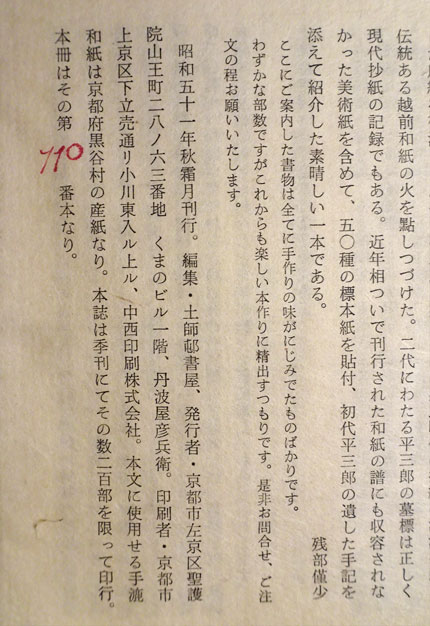 伝統ある越前和紙の火を點しつづけた。二代にわたる平三郎の墓標は正しく
現代抄紙の記録でもある。近年相ついで刊行された和紙の譜にも収容されな
かった美術紙を含めて、五〇種の標本紙を貼付、初代平三郎の遺した手記を
添えて紹介した素晴しい一本である。　残部僅少
ここにご案内した書物は全てに手作りの味がにじみでたものばかりです。
わずかな部数ですがこれからも楽しい本作りに精出すつもりです。是非お問合せ、ご注
文の程お願いいたします。
昭和五十一年秋霜月刊行。編集・土師邨書屋、発行者・京都市左京区聖護
院山王町二八ノ六三番地　くまのビル一階、丹波屋彦兵衛。印刷者・京都市
上京区下立売通リ小川東入ル上ル、中西印刷株式会社。本文に使用せる手漉
和紙は京都府黒谷村の産紙なり。本誌は季刊にてその数二百部を限って印行。
本冊はその第 110 番本なり。